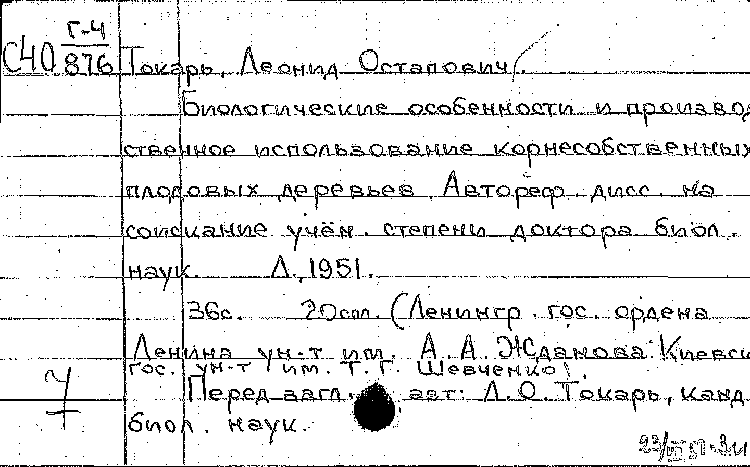 Г-4
С40 876 Токарь, Леонид Остапович.
Биологические особенности и производ
ственное использование корнесобственных
плодовых деревьев. Автореф. дисс. на
соискание учён. степени доктора биол.
наук. Л., 1951.
36с. 20см. (Ленингр. гос. ордена
Ленина ун-т им. А. А. Жданова. Киевск
гос. ун-т им. Т. Г. Шевченко).
Перед загл. авт: Л. О. Токарь, канд.
биол. наук.